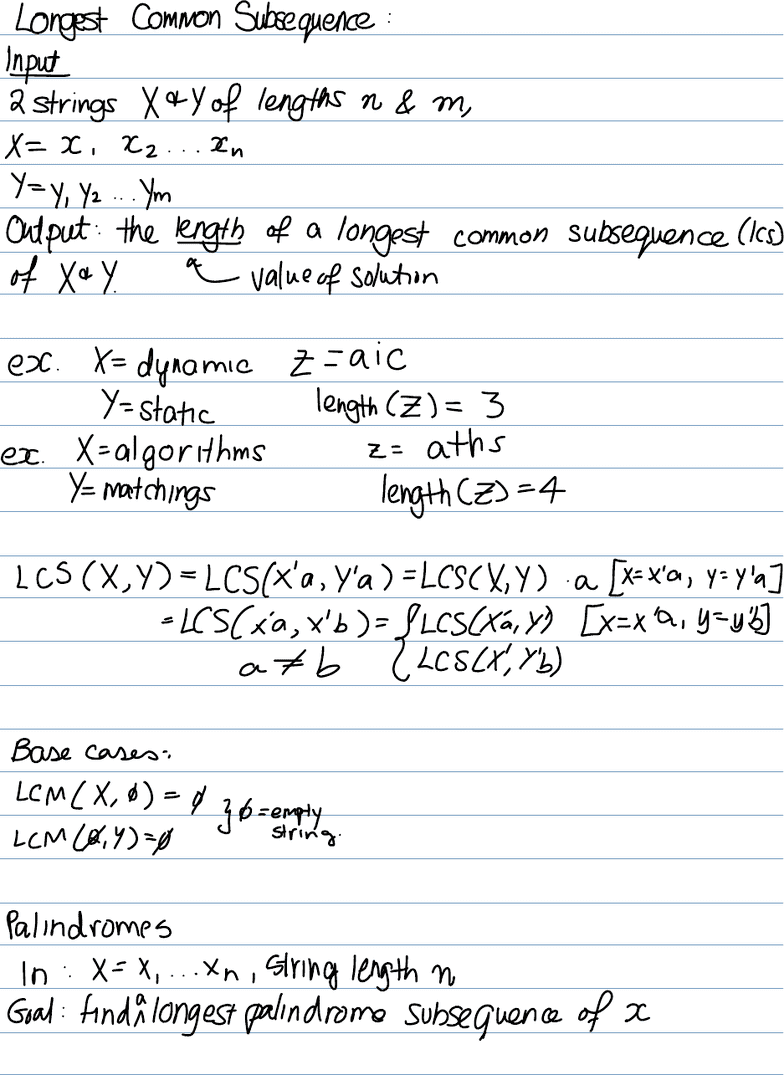 Longest Common Subsequence:
Input
2 strings X & Y of lengths n & m,
X = x₁ x₂ ... xₙ
Y = y₁ y₂ ... yₘ
Output: the length of a longest common subsequence (lcs)
of X & Y. ↖ value of solution
ex. X = dynamic z = aic
Y = static length(z) = 3
ex. X = algorithms z = aths
Y = matchings length(z) = 4
LCS(X,Y) = LCS(X'a, Y'a) = LCS(X,Y) · a [x=x'a, y=y'a]
= LCS(x'a, x'b) = { LCS(X'a, Y') [x=x'a, y=y'b]
a ≠ b { LCS(X', Y'b)
Base cases:
LCM(X, ϕ) = ϕ } ϕ = empty
LCM(ϕ, Y) = ϕ string.
Palindromes
In: X = x₁ ... xₙ, string length n
Goal: find a longest palindrome subsequence of x